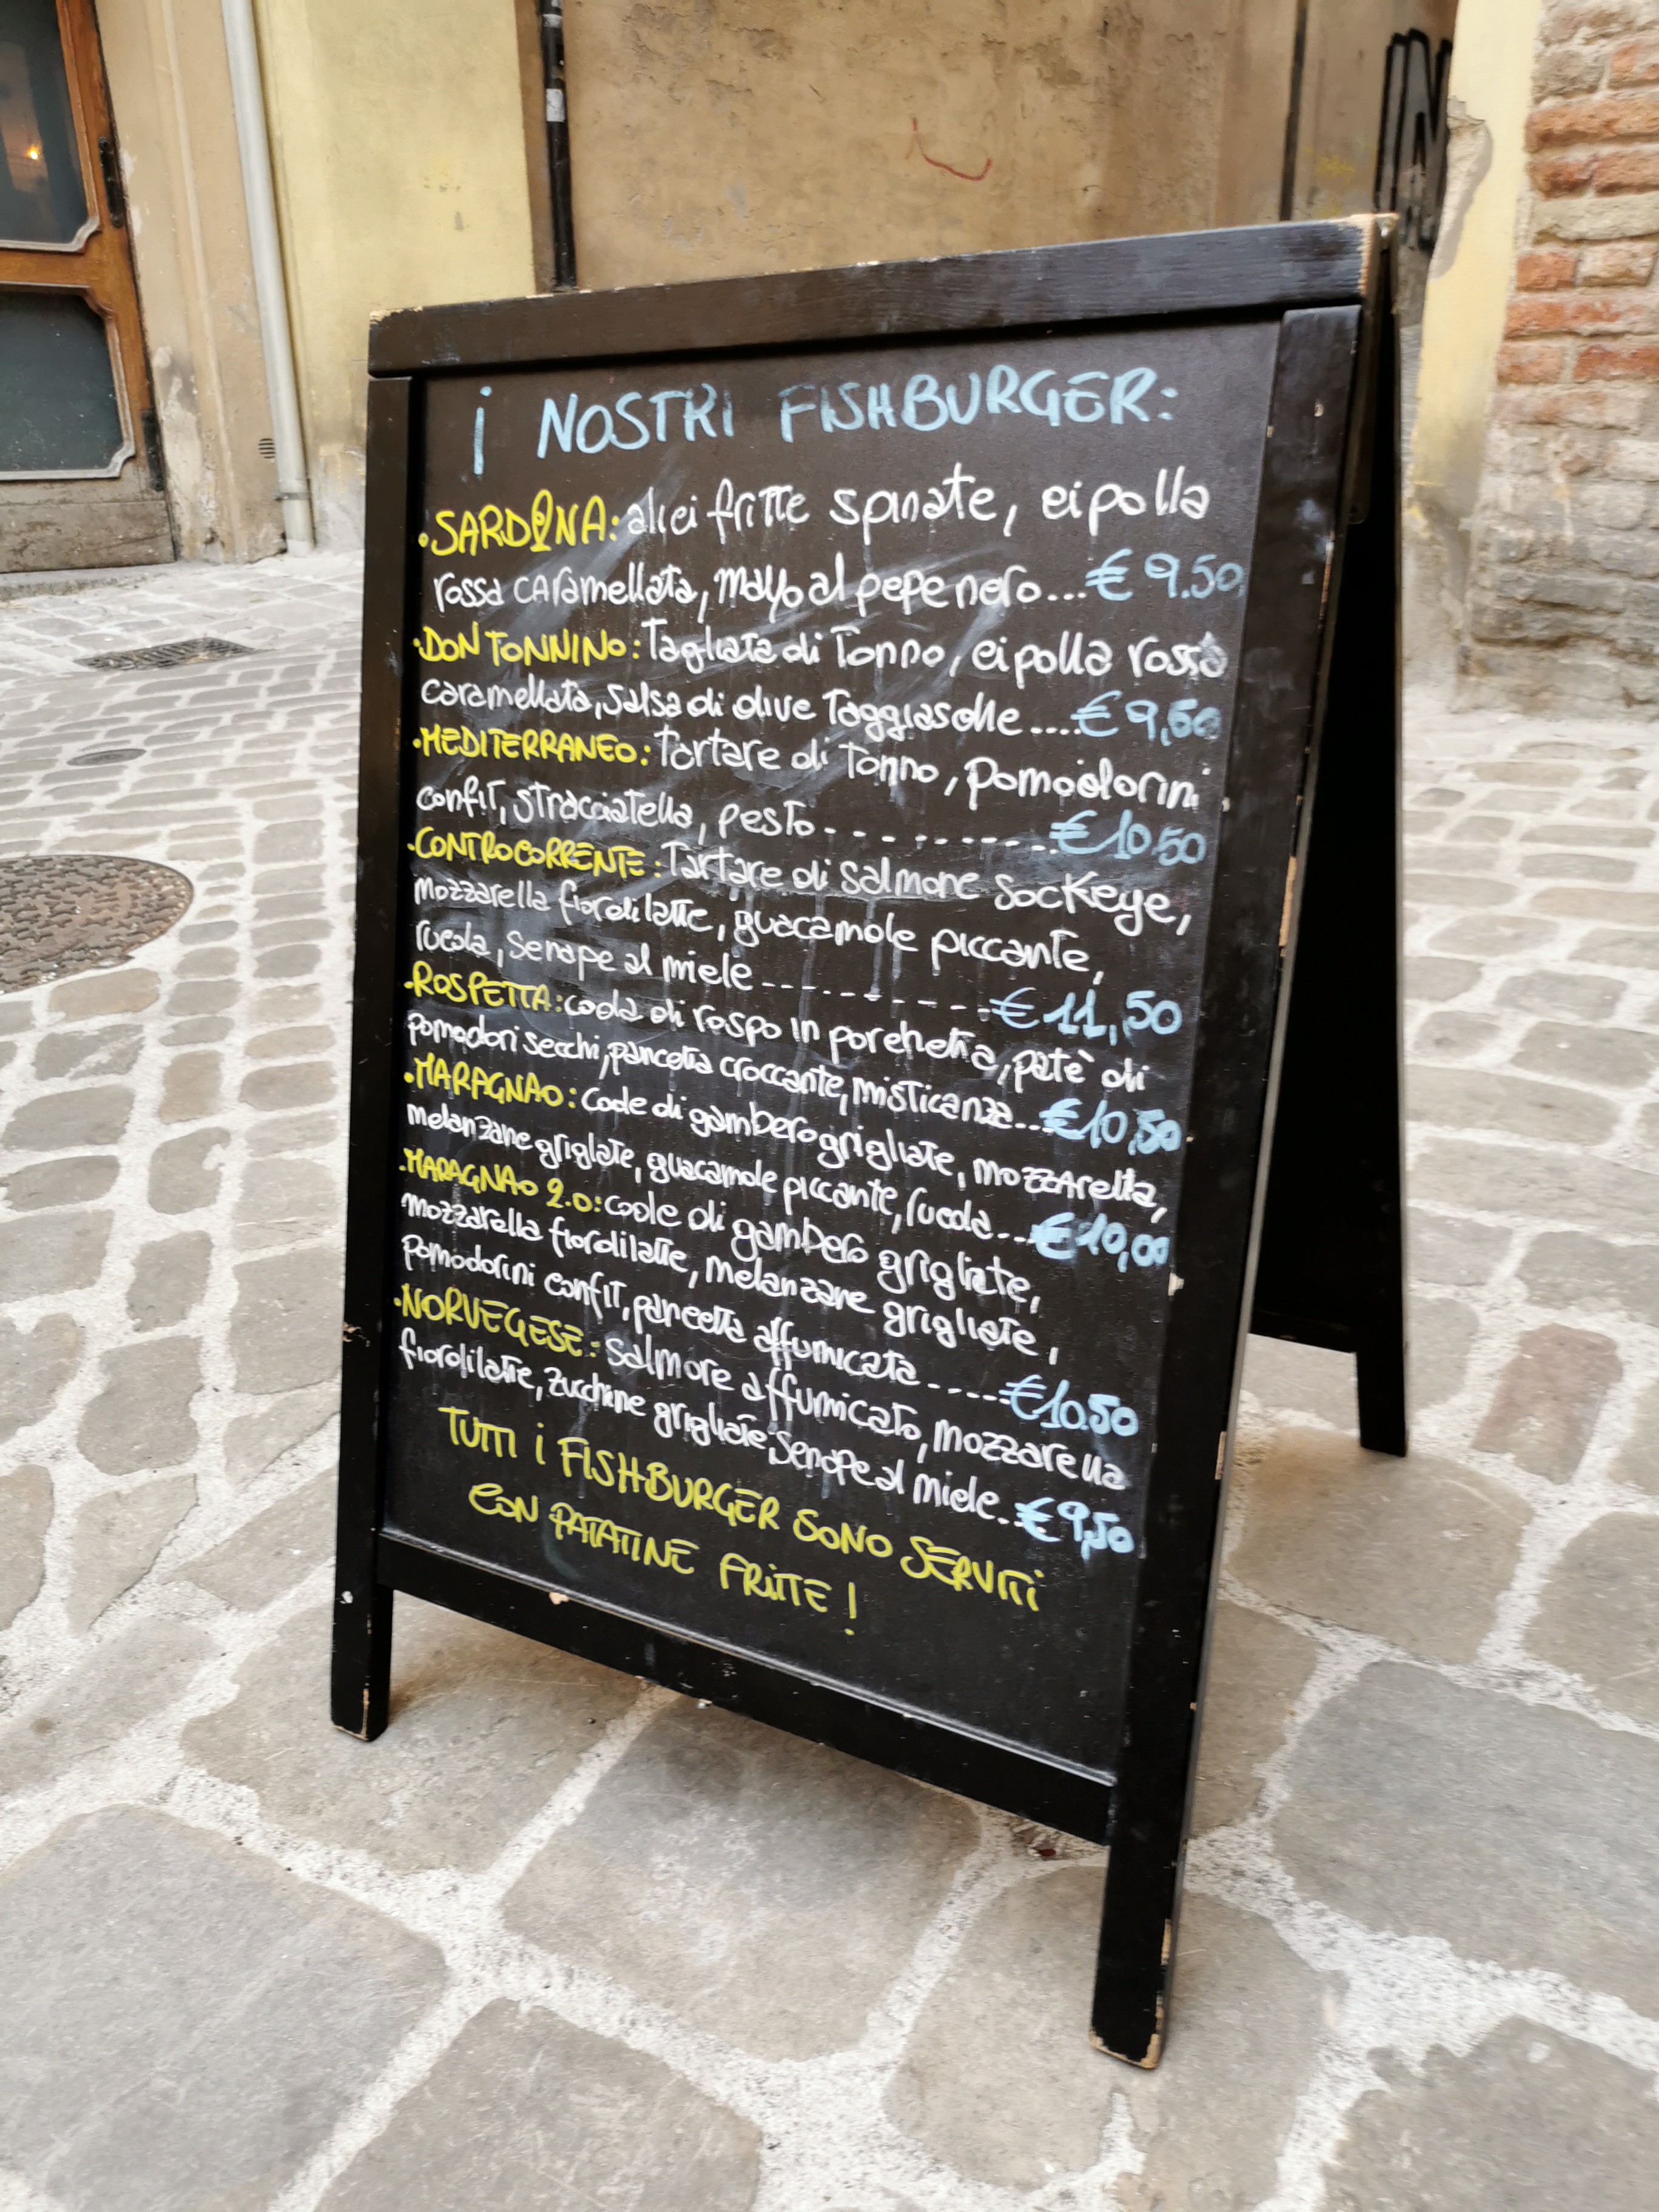 i NOSTRI FISHBURGER:
•SARDONA: alici fritte spinate, cipolla
rossa caramellata, mayo al pepe nero...€ 9.50
•DON TONNINO: Tagliata di Tonno, cipolla rossa
caramellata, salsa di olive Taggiasche....€ 9,50
•MEDITERRANEO: Tartare di Tonno, pomodorini
confit, stracciatella, pesto...........€10.50
•CONTROCORRENTE: Tartare di salmone sockeye,
mozzarella fiordilatte, guacamole piccante,
rucola, senape al miele----------€11,50
•ROSPETTA: coda di rospo in porchetta, patè di
pomodori secchi, pancetta croccante, misticanza...€10,50
•MARAGNAO: code di gambero grigliate, mozzarella,
melanzane grigliate, guacamole piccante, rucola...€10,00
•MARAGNAO 2.0: code di gambero grigliate,
mozzarella fiordilatte, melanzane grigliate,
pomodorini confit, pancetta affumicata.....€10.50
•NORVEGESE: salmone affumicato, mozzarella
fiordilatte, zucchine grigliate, senape al miele..€9,50
TUTTI i FISHBURGER SONO SERVITI
CON PATATINE FRITTE!